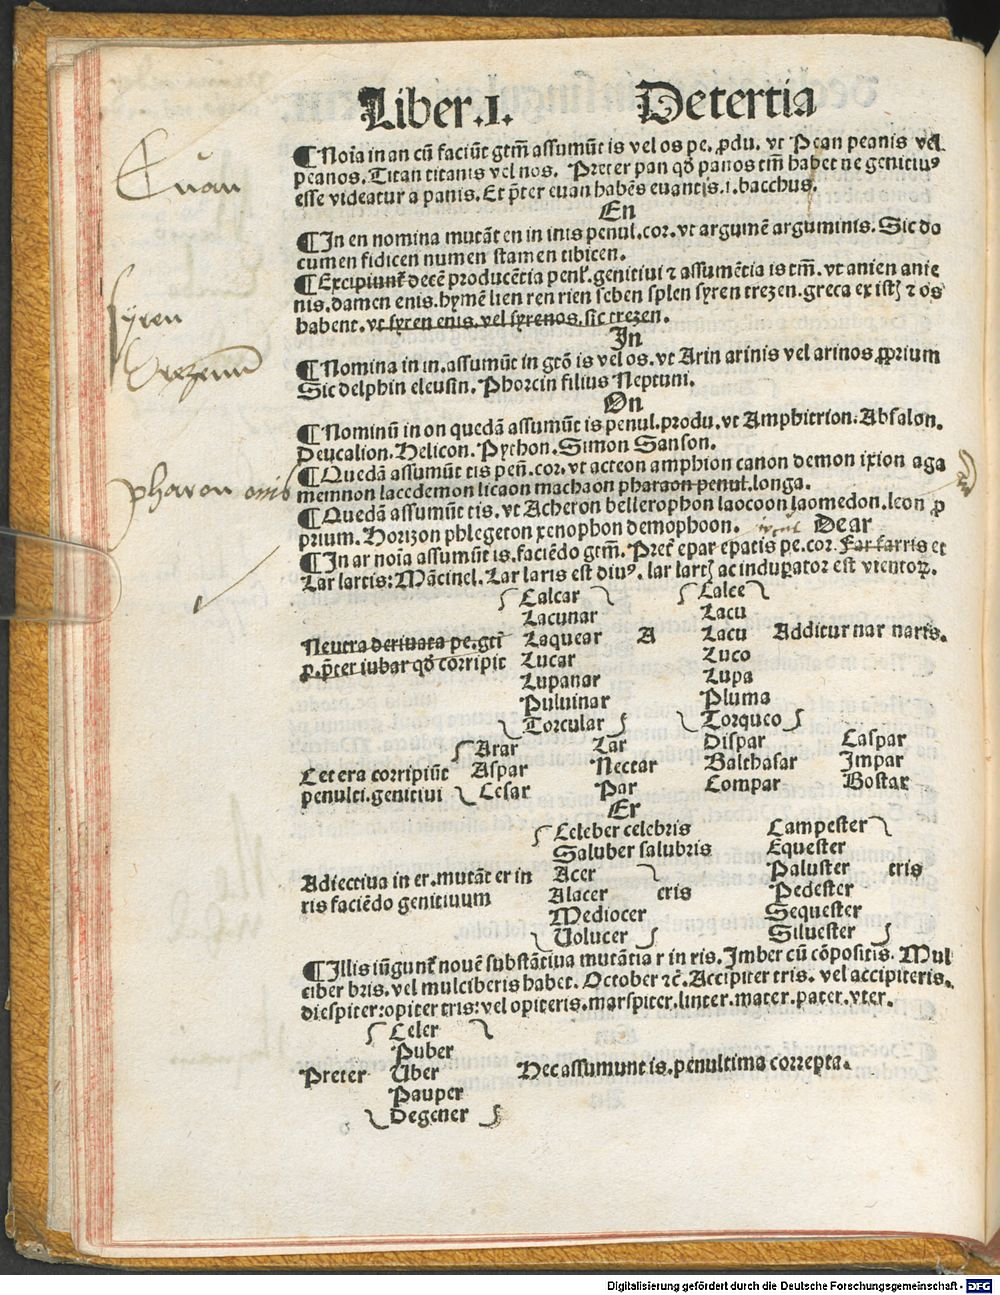 Liber.I. Detertia
¶Noīa in an cū faciūt gtm̄ assumūt is vel os pe. ꝓdu. vt Pean peanis vel
peanos. Titan titanis vel nos. Preter pan qd̄ panos tm̄ habet ne genitiuꝰ
esse videatur a panis. Et p̄ter euan habēs euantis.i.bacchus.
Euan
En
¶In en nomina mutāt en in inis penul.cor.vt argumē arguminis. Sic do
cumen fidicen numen stamen tibicen.
¶Excipiunt᷑ decē producētia penl᷑.genitiui ⁊ assumētia is tm̄. vt anien anie
nis.damen enis.hymē lien ren rien seben splen syren trezen.greca ex istꝭ ⁊ os
habent. vt syren enis.vel syrenos.sic trezen.
syren
Trezenn
In
¶Nomina in in.assumūt in gtō is vel os.vt Arin arinis vel arinos ꝓprium
Sic delphin eleusin. Phorcin filius Neptuni.
On
¶Nominū in on quedā assumūt is penul.produ.vt Amphitrion.Absalon.
Deucalion.Helicon.Python.Simon Sanson.
¶Quedā assumūt tis pen̄.cor.vt acteon amphion canon demon ixion aga
memnon lacedemon licaon machaon pharaon penul.longa.
pharon onis
¶Quedā assumūt tis.vt Acheron bellerophon laocoon laomedon.leon ꝓ
prium. Horizon phlegeton xenophon demophoon. De ar
¶In ar noīa assumūt is.faciēdo gtm̄. Pret᷑ epar epatis pe.cor. Far farris et
Lar lartis: Mācinel. Lar laris est diuꝰ. lar lartꝭ ac induꝑator est vientoꝝ.
Calcar Calce
Lacunar Lacu
Neutra deriuata pe.gti᷑ Laquear A Lacu Additur nar naris.
ꝓ.p̄ter iubar qd̄ corripit Lucar Luco
Lupanar Lupa
Puluinar Pluma
Torcular Torqueo
Arar Lar Dispar Caspar
Cetera corripiūt Aspar Nectar Balthasar Impar
penulti.genitiui Cesar Par Compar Bostar
Er
Celeber celebris Campester
Saluber salubris Equester
Adiectiua in er.mutāt er in Acer Paluster tris
ris faciēdo genitiuum Alacer cris Pedester
Mediocer Sequester
Uolucer Siluester
¶Illis iūgunt᷑ nouē substātiua mutātia r in ris. Imber cū cōpositis. Mul
ciber bris.vel mulciberis habet. October ⁊c̄. Accipiter tris. vel accipiteris.
diespiter:opiter tris:vel opiteris.marspiter.linter.mater.pater.vter.
Celer
Puber
Preter Uber Hec assumunt is.penultima correpta.
Pauper
Degener
Digitalisierung gefördert durch die Deutsche Forschungsgemeinschaft - DFG